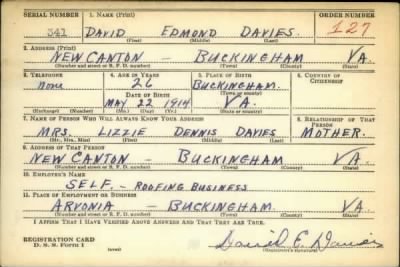 SERIAL NUMBER 1. NAME (Print) ORDER NUMBER
341 DAVID EDMOND DAVIES. 127
(First) (Middle) (Last)
2. ADDRESS (Print)
NEW CANTON — BUCKINGHAM VA.
(Number and street or R. F. D. number) (Town) (County) (State)
3. TELEPHONE 4. AGE IN YEARS 5. PLACE OF BIRTH 6. COUNTRY OF CITIZENSHIP
None 26 BUCKINGHAM.
DATE OF BIRTH (Town or county)
MAY 22 1914 VA.
(Exchange) (Number) (Mo.) (Day) (Yr.) (State or country)
7. NAME OF PERSON WHO WILL ALWAYS KNOW YOUR ADDRESS 8. RELATIONSHIP OF THAT PERSON
MRS. LIZZIE DENNIS DAVIES MOTHER.
(Mr., Mrs., Miss) (First) (Middle) (Last)
9. ADDRESS OF THAT PERSON
NEW CANTON — BUCKINGHAM VA.
(Number and street or R. F. D. number) (Town) (County) (State)
10. EMPLOYER'S NAME
SELF. — ROOFING BUSINESS
11. PLACE OF EMPLOYMENT OR BUSINESS
ARVONIA — BUCKINGHAM. VA
(Number and street or R. F. D. number) (Town) (County) (State)
I AFFIRM THAT I HAVE VERIFIED ABOVE ANSWERS AND THAT THEY ARE TRUE.
REGISTRATION CARD
D. S. S. Form 1 David E. Davies
(Registrant's signature)